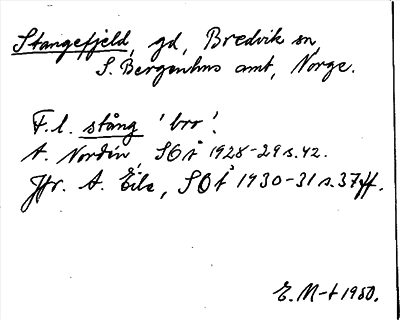 Stangefjeld, gd, Bredvik sn,
S. Bergenhus amt, Norge.
F.l. stång 'bro'.
A. Nordén, SOÅ 1928-29 s. 42.
Jfr. A. Eile, SOÅ 1930-31 s. 37ff.
E. M-t 1950.